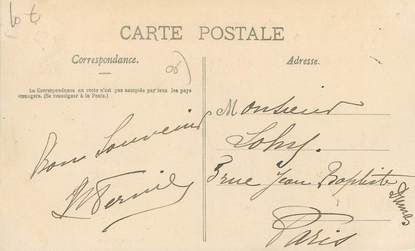 CARTE POSTALE
Correspondance.
La Correspondance au recto n'est pas acceptée par tous les pays
étrangers. (Se renseigner à la Poste.)
Bon Souvenir
Adresse.
Monsieur
3 rue Jean Baptiste
Dumas
Paris